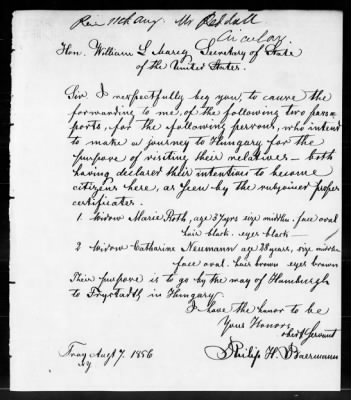 Rec 11th Aug. Mr
Circular.
Hon. William L Marcy Secretary of State
of the United States.
Sir I respectfully beg you, to cause the
forwarding to me, of the following two pass-
ports, for the following persons, who intend
to make a journey to Hungary for the
purpose of visiting their relatives – both
having declared their intentions to become
citizens here, as seen by the subjoined proper
certificates.
1 Widow Marie Roth, age 37 yrs size middln. face oval
hair black. eyes black —
2 Widow Catharine Neumann age 28 years, size middln
face oval. hair brown eyes brown
Their purpose is to go by the way of Hamburgh
to in Hungary.
I have the honor to be
Yours Honors
obedt Servant
Troy Augt 7. 1856 Philip H. Baermann
NY